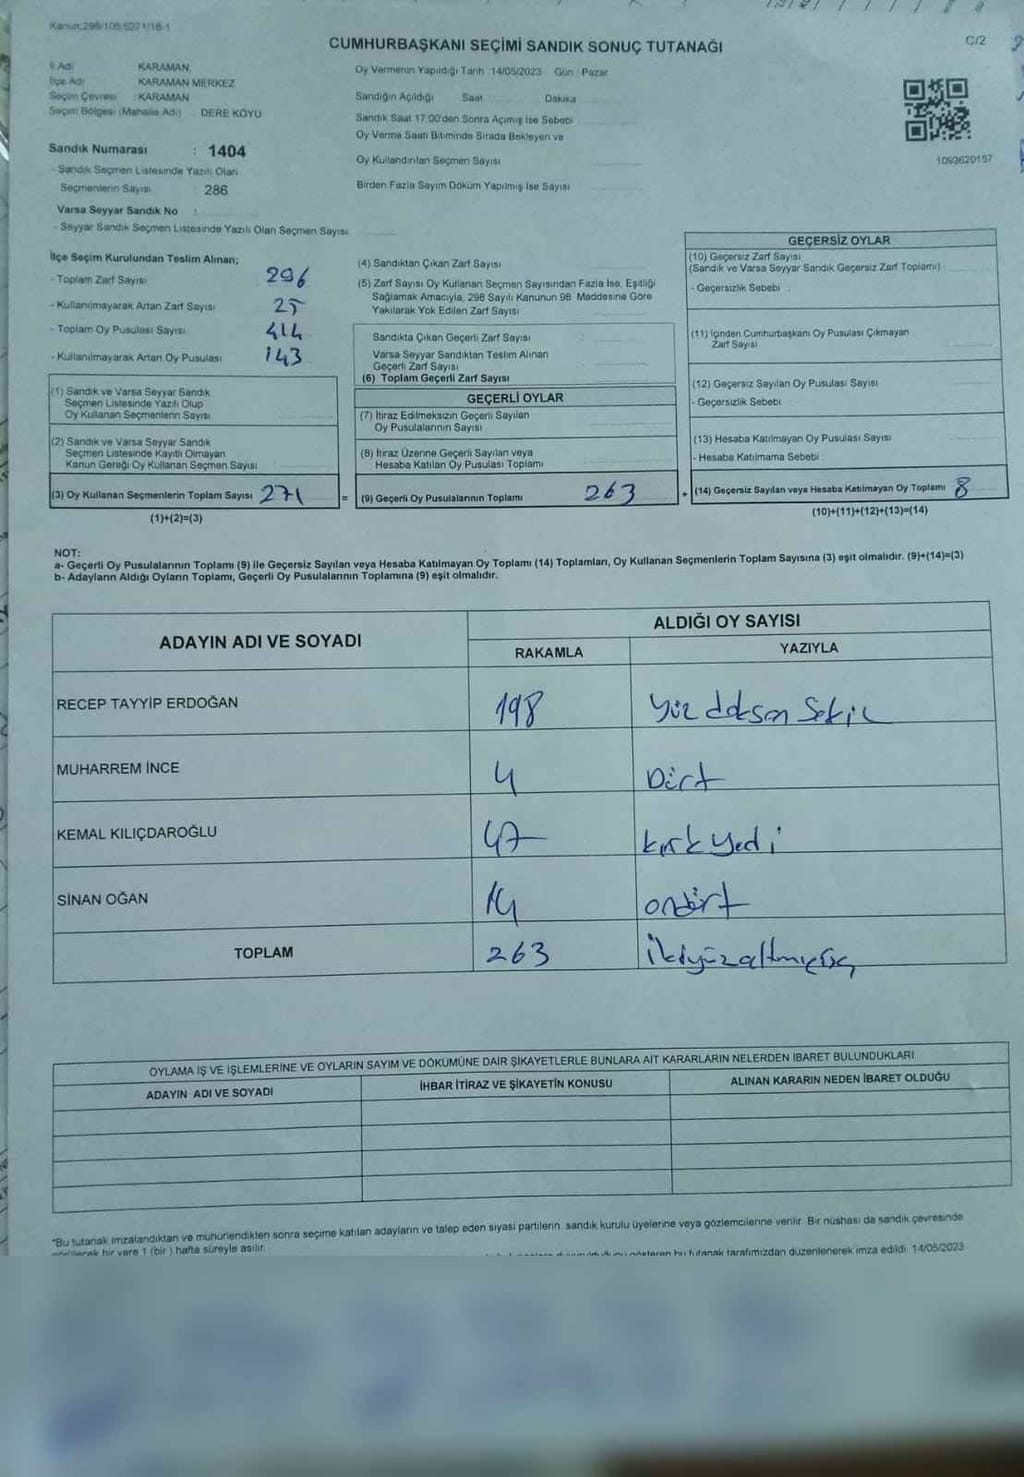 Kanun:298/105;6271/16-1
CUMHURBAŞKANI SEÇİMİ SANDIK SONUÇ TUTANAĞI
C/2
İl Adı KARAMAN
İlçe Adı KARAMAN MERKEZ
Seçim Çevresi : KARAMAN
Seçim Bölgesi (Mahalle Adı) DERE KÖYÜ
Sandık Numarası : 1404
- Sandık Seçmen Listesinde Yazılı Olan
Seçmenlerin Sayısı 286
Varsa Seyyar Sandık No :
- Seyyar Sandık Seçmen Listesinde Yazılı Olan Seçmen Sayısı
Oy Vermenin Yapıldığı Tarih : 14/05/2023 Gün : Pazar
Sandığın Açıldığı Saat Dakika
Sandık Saat 17.00'den Sonra Açılmış İse Sebebi
Oy Verme Saati Bitiminde Sırada Bekleyen ve
Oy Kullandırılan Seçmen Sayısı
Birden Fazla Sayım Döküm Yapılmış İse Sayısı
1093620157
İlçe Seçim Kurulundan Teslim Alınan;
- Toplam Zarf Sayısı 296
- Kullanılmayarak Artan Zarf Sayısı 25
- Toplam Oy Pusulası Sayısı 414
- Kullanılmayarak Artan Oy Pusulası 143
(1) Sandık ve Varsa Seyyar Sandık
Seçmen Listesinde Yazılı Olup
Oy Kullanan Seçmenlerin Sayısı
(2) Sandık ve Varsa Seyyar Sandık
Seçmen Listesinde Kayıtlı Olmayan
Kanun Gereği Oy Kullanan Seçmen Sayısı
(3) Oy Kullanan Seçmenlerin Toplam Sayısı 271
(1)+(2)=(3)
(4) Sandıktan Çıkan Zarf Sayısı
(5) Zarf Sayısı Oy Kullanan Seçmen Sayısından Fazla İse, Eşitliği
Sağlamak Amacıyla, 298 Sayılı Kanunun 98. Maddesine Göre
Yakılarak Yok Edilen Zarf Sayısı
Sandıkta Çıkan Geçerli Zarf Sayısı
Varsa Seyyar Sandıktan Teslim Alınan
Geçerli Zarf Sayısı
(6) Toplam Geçerli Zarf Sayısı
GEÇERLİ OYLAR
(7) İtiraz Edilmeksizin Geçerli Sayılan
Oy Pusulalarının Sayısı
(8) İtiraz Üzerine Geçerli Sayılan veya
Hesaba Katılan Oy Pusulası Toplamı
= (9) Geçerli Oy Pusulalarının Toplamı 263
GEÇERSİZ OYLAR
(10) Geçersiz Zarf Sayısı
(Sandık ve Varsa Seyyar Sandık Geçersiz Zarf Toplamı)
- Geçersizlik Sebebi
(11) İçinden Cumhurbaşkanı Oy Pusulası Çıkmayan
Zarf Sayısı
(12) Geçersiz Sayılan Oy Pusulası Sayısı
- Geçersizlik Sebebi
(13) Hesaba Katılmayan Oy Pusulası Sayısı
- Hesaba Katılmama Sebebi
+ (14) Geçersiz Sayılan veya Hesaba Katılmayan Oy Toplamı 8
(10)+(11)+(12)+(13)=(14)
NOT:
a- Geçerli Oy Pusulalarının Toplamı (9) ile Geçersiz Sayılan veya Hesaba Katılmayan Oy Toplamı (14) Toplamları, Oy Kullanan Seçmenlerin Toplam Sayısına (3) eşit olmalıdır. (9)+(14)=(3)
b- Adayların Aldığı Oyların Toplamı, Geçerli Oy Pusulalarının Toplamına (9) eşit olmalıdır.
ADAYIN ADI VE SOYADI
ALDIĞI OY SAYISI
RAKAMLA YAZIYLA
RECEP TAYYİP ERDOĞAN 198 yüz doksan Sekiz
MUHARREM İNCE 4 Dört
KEMAL KILIÇDAROĞLU 47 kırk yedi
SİNAN OĞAN 14 ondört
TOPLAM 263 ikiyüzaltmışüç
OYLAMA İŞ VE İŞLEMLERİNE VE OYLARIN SAYIM VE DÖKÜMÜNE DAİR ŞİKAYETLERLE BUNLARA AİT KARARLARIN NELERDEN İBARET BULUNDUKLARI
ADAYIN ADI VE SOYADI İHBAR İTİRAZ VE ŞİKAYETİN KONUSU ALINAN KARARIN NEDEN İBARET OLDUĞU
*Bu tutanak imzalandıktan ve mühürlendikten sonra seçime katılan adayların ve talep eden siyasi partilerin sandık kurulu üyelerine veya gözlemcilerine verilir. Bir nüshası da sandık çevresinde
görülecek bir yere 1 (bir) hafta süreyle asılır.
gösteren bu tutanak tarafımızdan düzenlenerek imza edildi. 14/05/2023